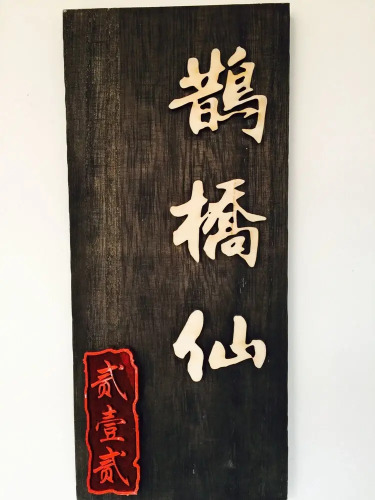 鵲橋仙
貳壹貳